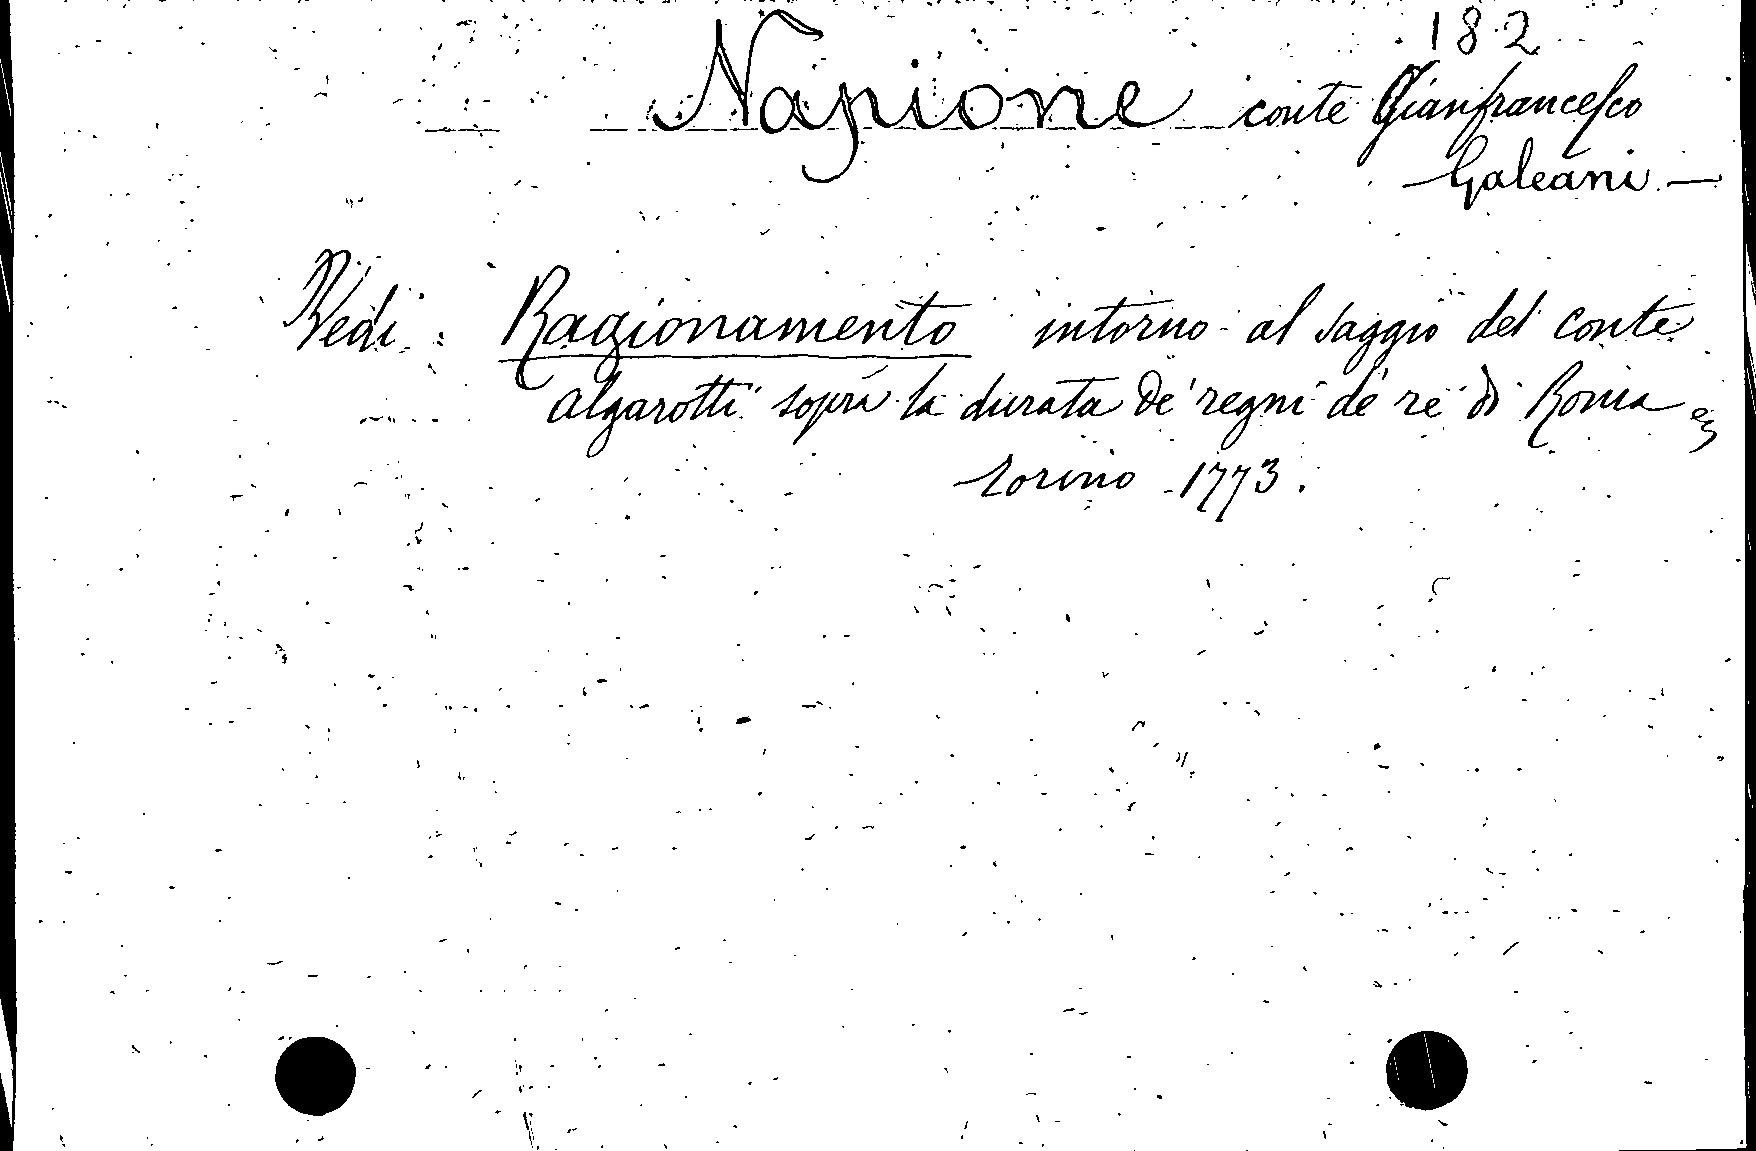 182
Napione conte Gianfrancesco
Galeani —
Vedi : Ragionamento intorno al saggio del conte
Algarotti sopra la durata de' regni de' re di Roma
Torino 1773.